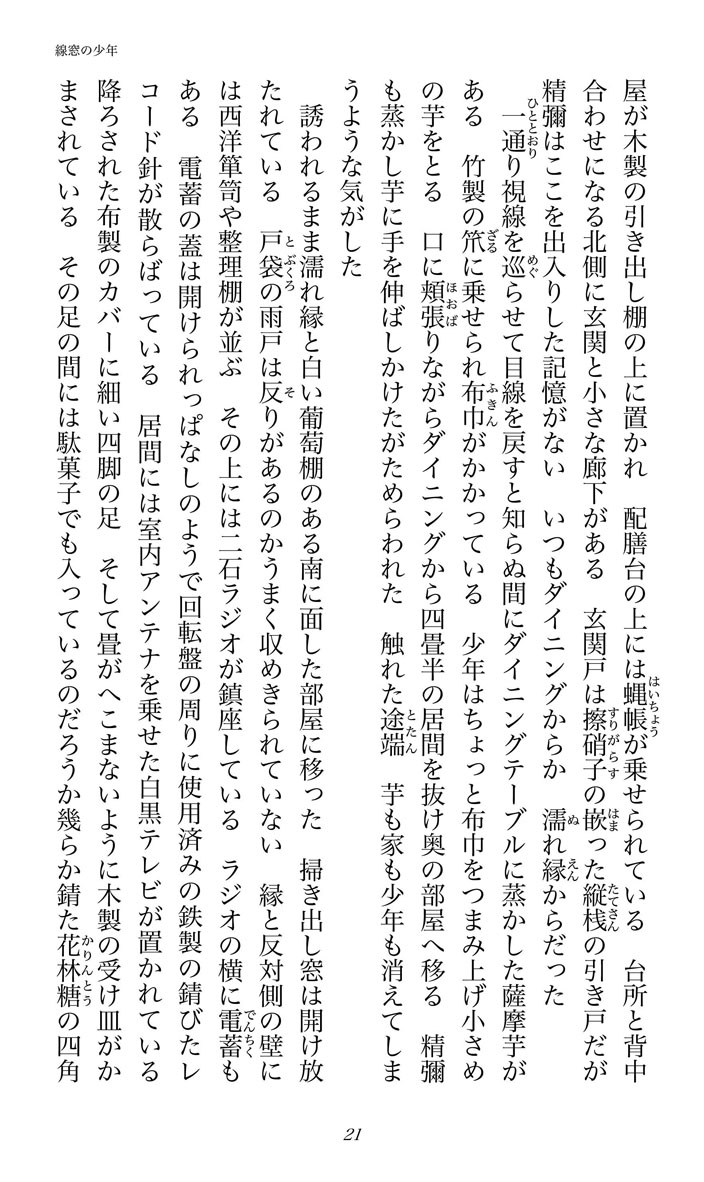 線窓の少年
屋が木製の引き出し棚の上に置かれ　配膳台の上には蝿帳が乗せられている　台所と背中
はいちょう
合わせになる北側に玄関と小さな廊下がある　玄関戸は擦硝子の嵌った縦桟の引き戸だが
すりがらす
はま
たてさん
精彌はここを出入りした記憶がない　いつもダイニングからか　濡れ縁からだった
ぬ
えん
一通り視線を巡らせて目線を戻すと知らぬ間にダイニングテーブルに蒸かした薩摩芋が
ひととおり
めぐ
ある　竹製の笊に乗せられ布巾がかかっている　少年はちょっと布巾をつまみ上げ小さめ
ざる
ふきん
の芋をとる　口に頬張りながらダイニングから四畳半の居間を抜け奥の部屋へ移る　精彌
ほおば
も蒸かし芋に手を伸ばしかけたがためらわれた　触れた途端　芋も家も少年も消えてしま
とたん
うような気がした
誘われるまま濡れ縁と白い葡萄棚のある南に面した部屋に移った　掃き出し窓は開け放
たれている　戸袋の雨戸は反りがあるのかうまく収めきられていない　縁と反対側の壁に
とぶくろ
そ
は西洋箪笥や整理棚が並ぶ　その上には二石ラジオが鎮座している　ラジオの横に電蓄も
でんちく
ある　電蓄の蓋は開けられっぱなしのようで回転盤の周りに使用済みの鉄製の錆びたレ
コード針が散らばっている　居間には室内アンテナを乗せた白黒テレビが置かれている
降ろされた布製のカバーに細い四脚の足　そして畳がへこまないように木製の受け皿がか
まされている　その足の間には駄菓子でも入っているのだろうか幾らか錆た花林糖の四角
かりんとう
21